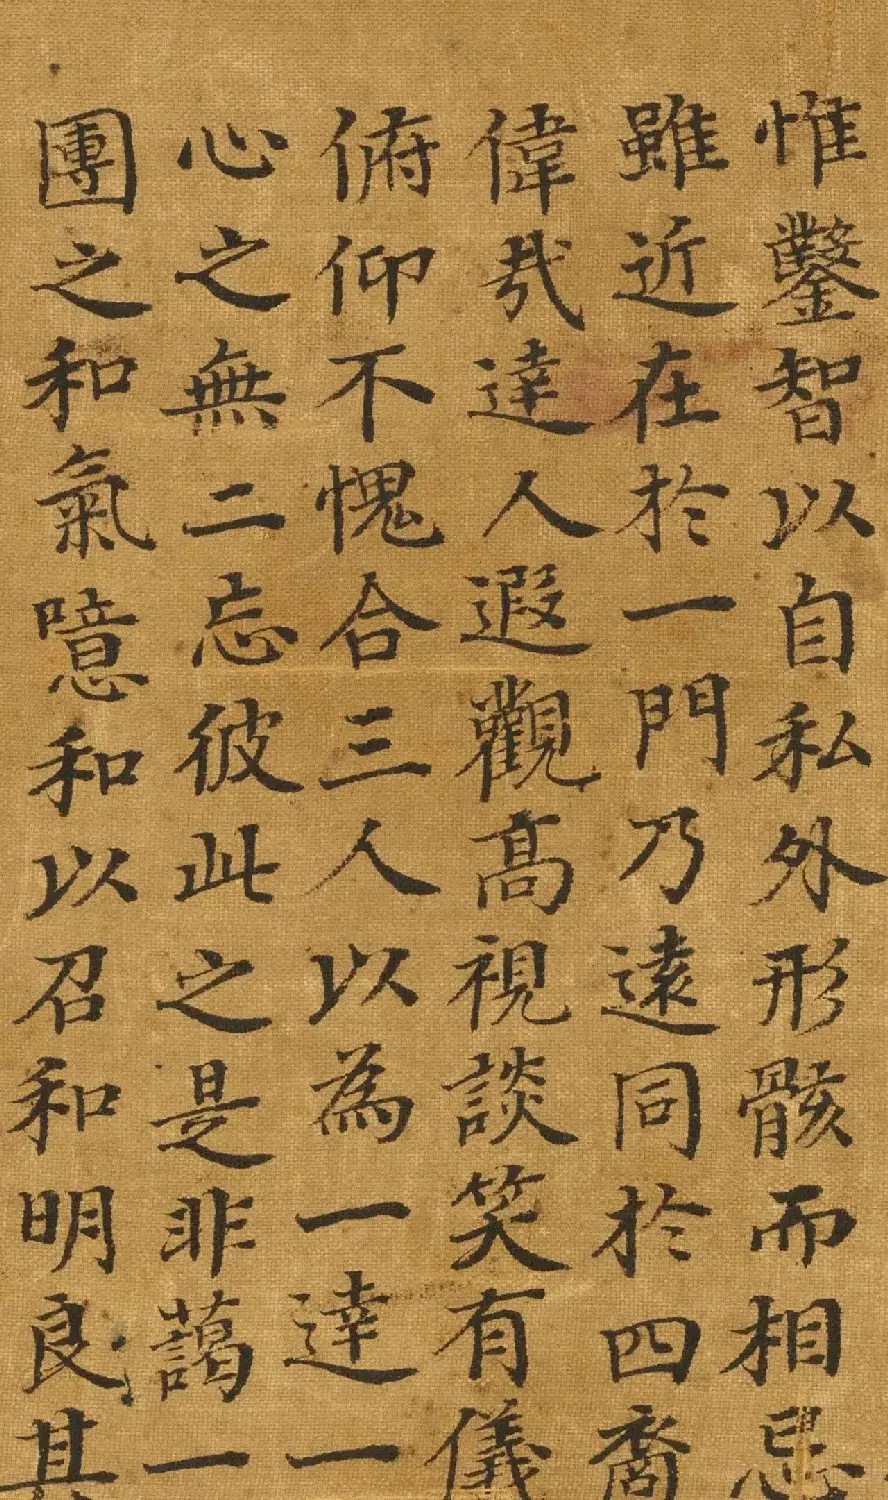 惟鑿智以自私外形骸而相忌
雖近在於一門乃遠同於四裔
偉哉達人遐觀髙視談笑有儀
俯仰不愧合三人以為一達一
心之無二忘彼此之是非藹一
團之和氣噫和以召和明良其